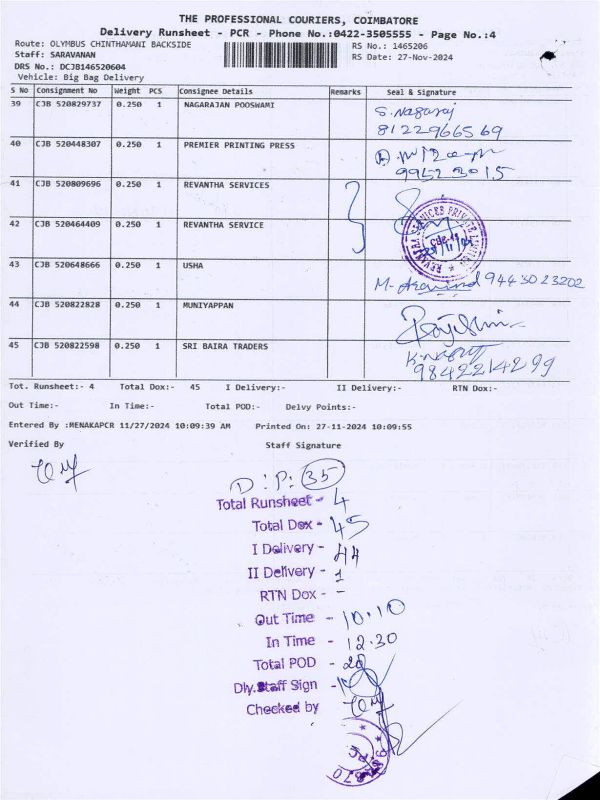 THE PROFESSIONAL COURIERS, COIMBATORE
Delivery Runsheet - PCR - Phone No.:0422-3505555 - Page No.:4
Route: OLYMBUS CHINTHAMANI BACKSIDE RS No.: 1465206
Staff: SARAVANAN RS Date: 27-Nov-2024
DRS No.: DCJB146520604
Vehicle: Big Bag Delivery
S No Consignment No Weight PCS Consignee Details Remarks Seal & Signature
39 CJB 520829737 0.250 1 NAGARAJAN POOSWAMI S. Nagaraj
8122966569
40 CJB 520448307 0.250 1 PREMIER PRINTING PRESS
99523015
41 CJB 520809696 0.250 1 REVANTHA SERVICES
REVANTHA SERVICES PRIVATE LIMITED
42 CJB 520464409 0.250 1 REVANTHA SERVICE
43 CJB 520648666 0.250 1 USHA M. Aravind 9443023202
44 CJB 520822828 0.250 1 MUNIYAPPAN
45 CJB 520822598 0.250 1 SRI BAIRA TRADERS
9842214299
Tot. Runsheet:- 4 Total Dox:- 45 I Delivery:- II Delivery:- RTN Dox:-
Out Time:- In Time:- Total POD:- Delvy Points:-
Entered By :MENAKAPCR 11/27/2024 10:09:39 AM Printed On: 27-11-2024 10:09:55
Verified By Staff Signature
D:P: 35
Total Runsheet - 4
Total Dox - 45
I Delivery - 44
II Delivery - 1
RTN Dox - -
Out Time - 10.10
In Time - 12.30
Total POD - 28
Dly.Staff Sign -
Checked by